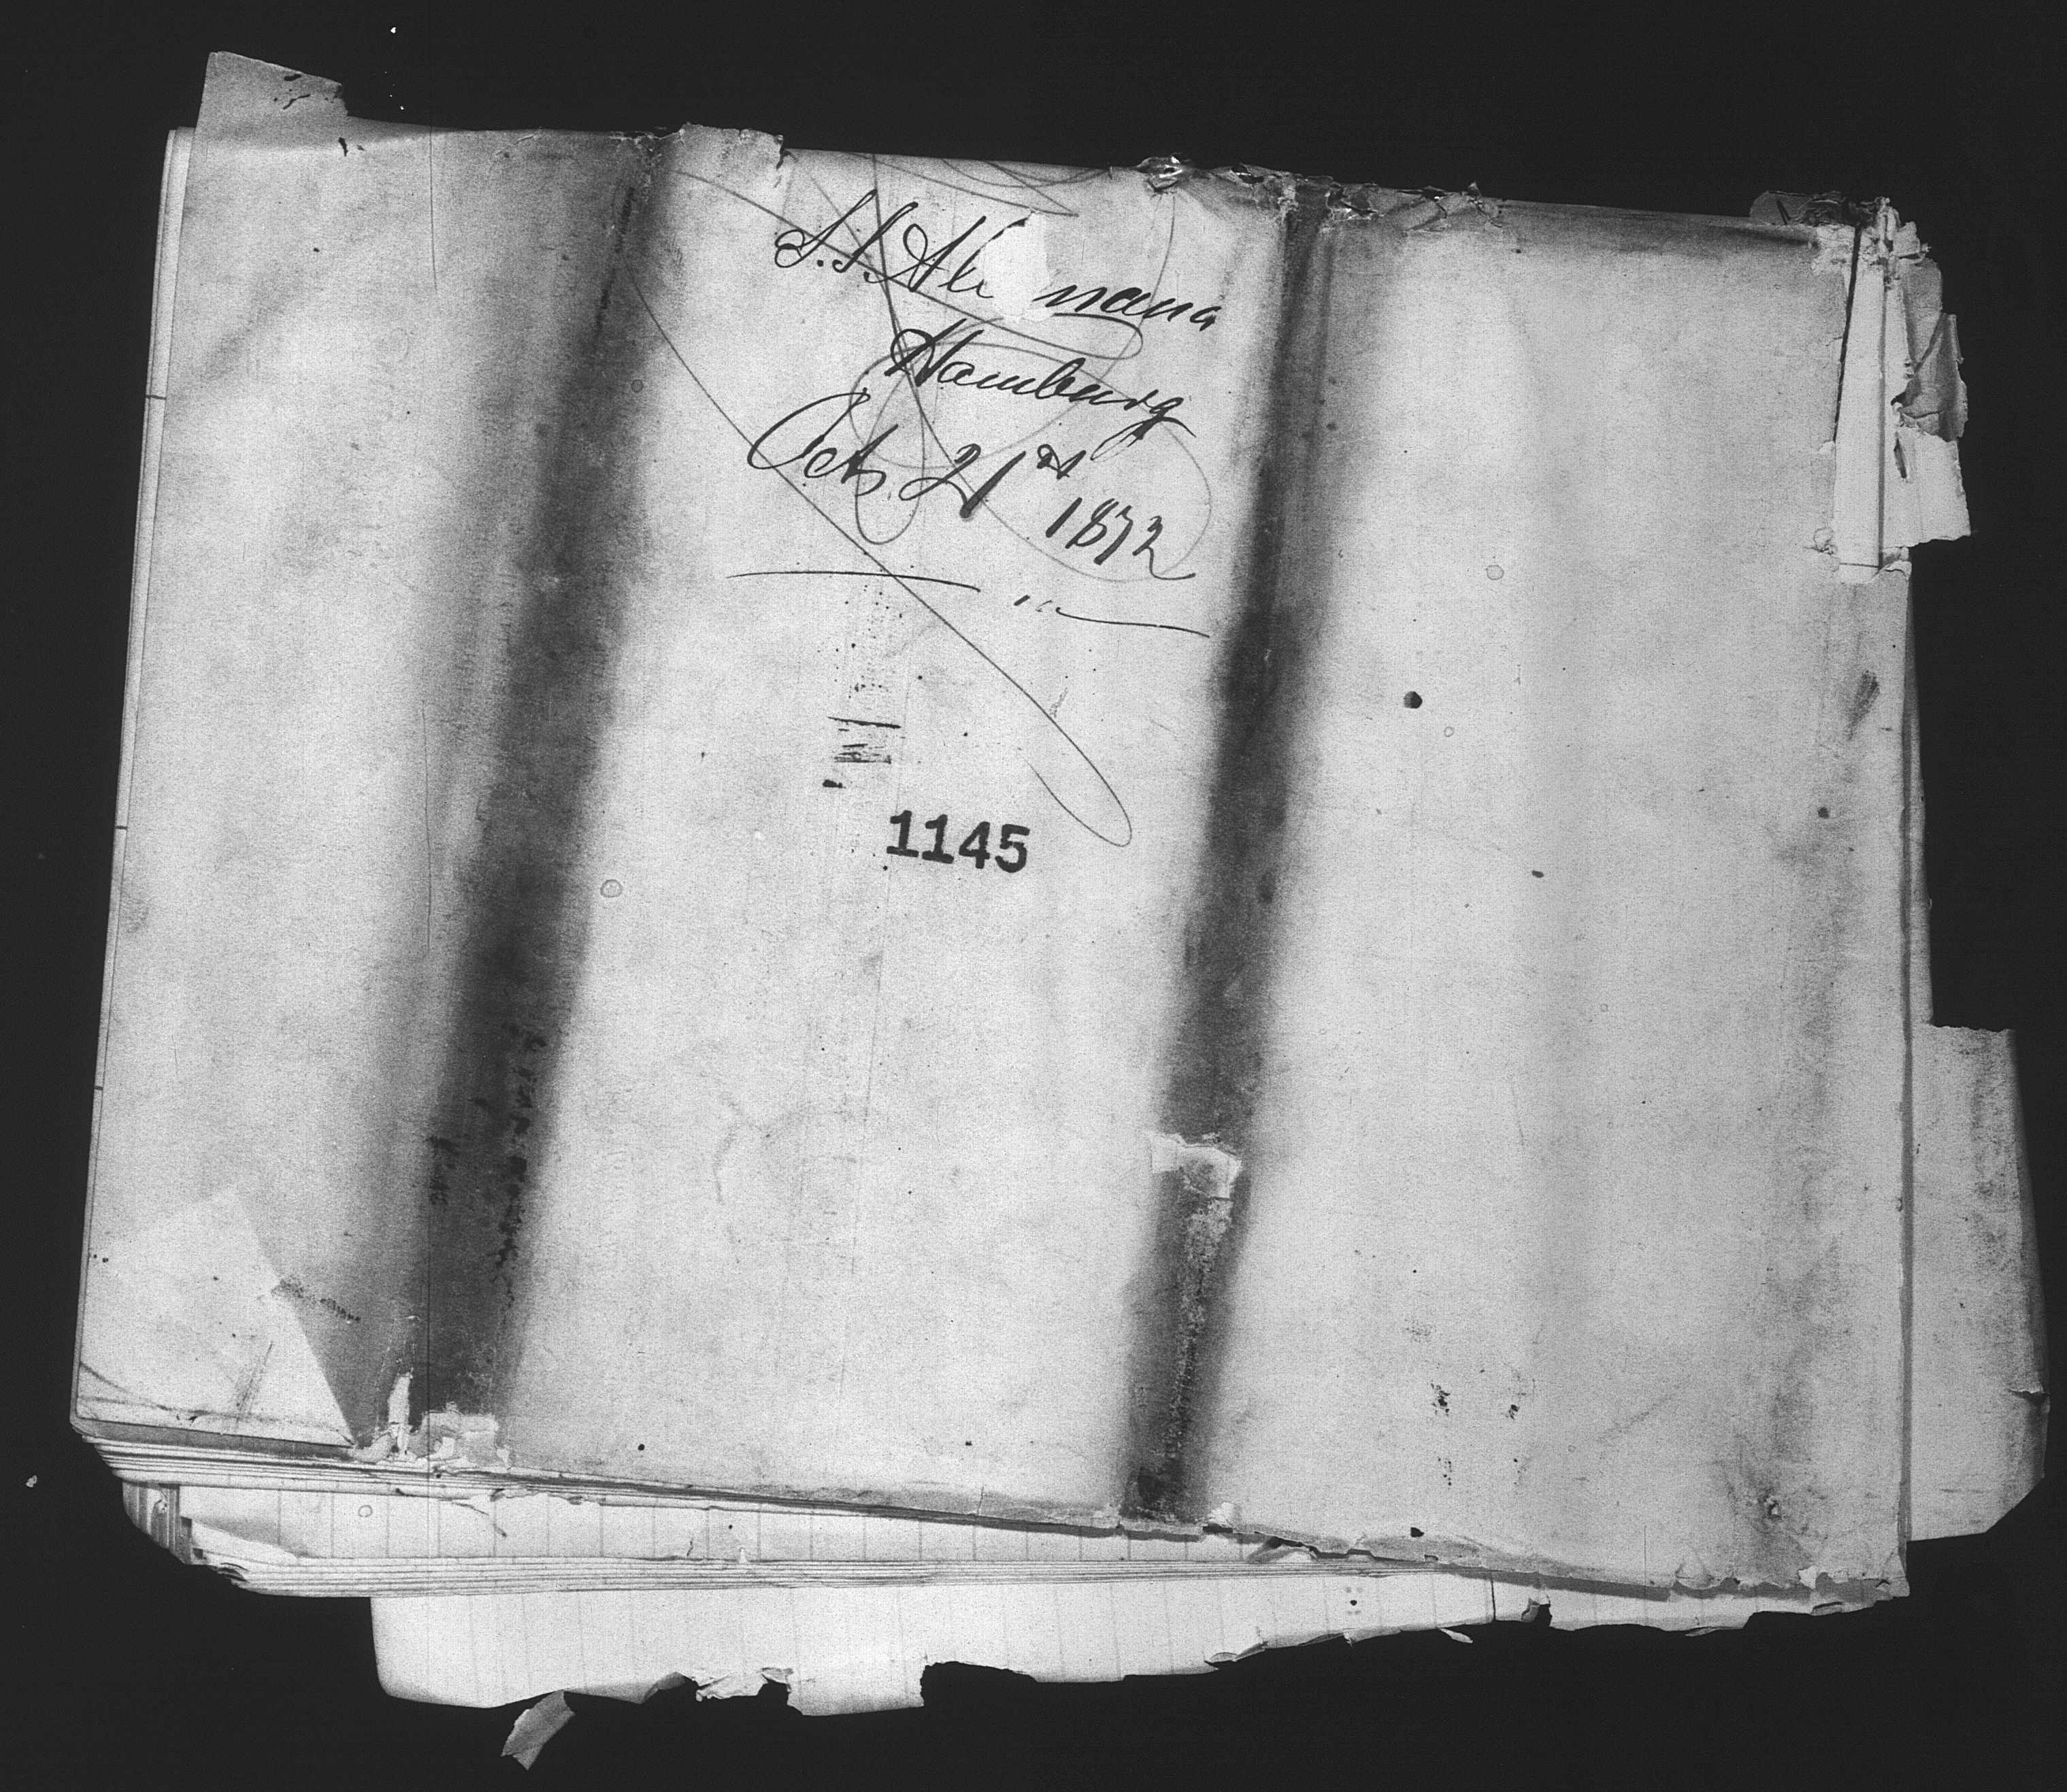 S.S. Ale mana
Hamburg
Oct. 21st 1872
1145